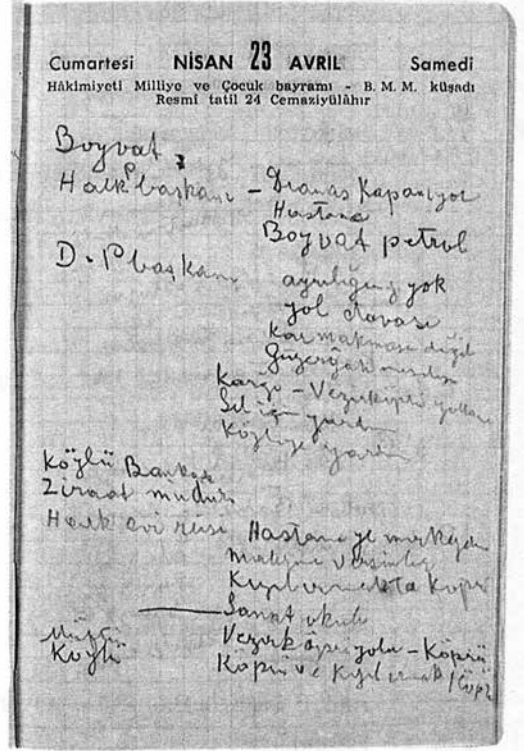 Cumartesi NİSAN 23 AVRIL Samedi
Hâkimiyeti Milliye ve Çocuk bayramı - B. M. M. küşadı
Resmî tatil 24 Cemaziyülâhır
Boyvat
Halk P başkanı - Dranas Kapanıyor
Hastane
Boyvat petrol
D. P başkanı
ayrılığın yok
yol davası
Kar makinası değil
Kargı - Vezirköprü yolları
Sel için yardım
Köylüye yardım
Köylü Bankası
Ziraat müdürü
Halk evi reisi Hastaneye
Kızılırmakta Köprü
Sanat okulu
Müftü Vezirköprü yolu - Köprü
Köylü Köprü ve Kızılırmak Köpr